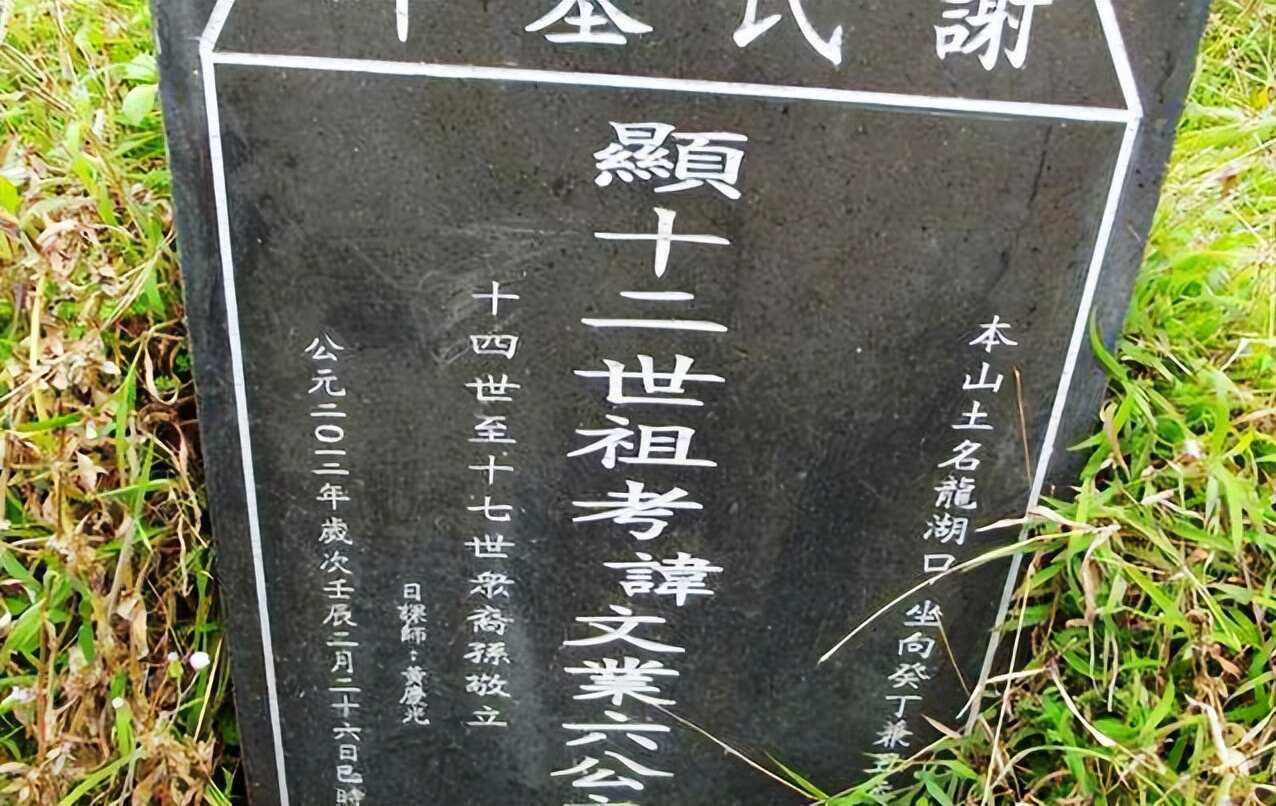 謝氏
本山土名龍湖口 坐向癸丁兼丑
顯十二世祖考諱文業六公
十四世至十七世衆裔孫敬立
日課師：黃慶
公元二〇一二年歲次壬辰二月二十六日巳時